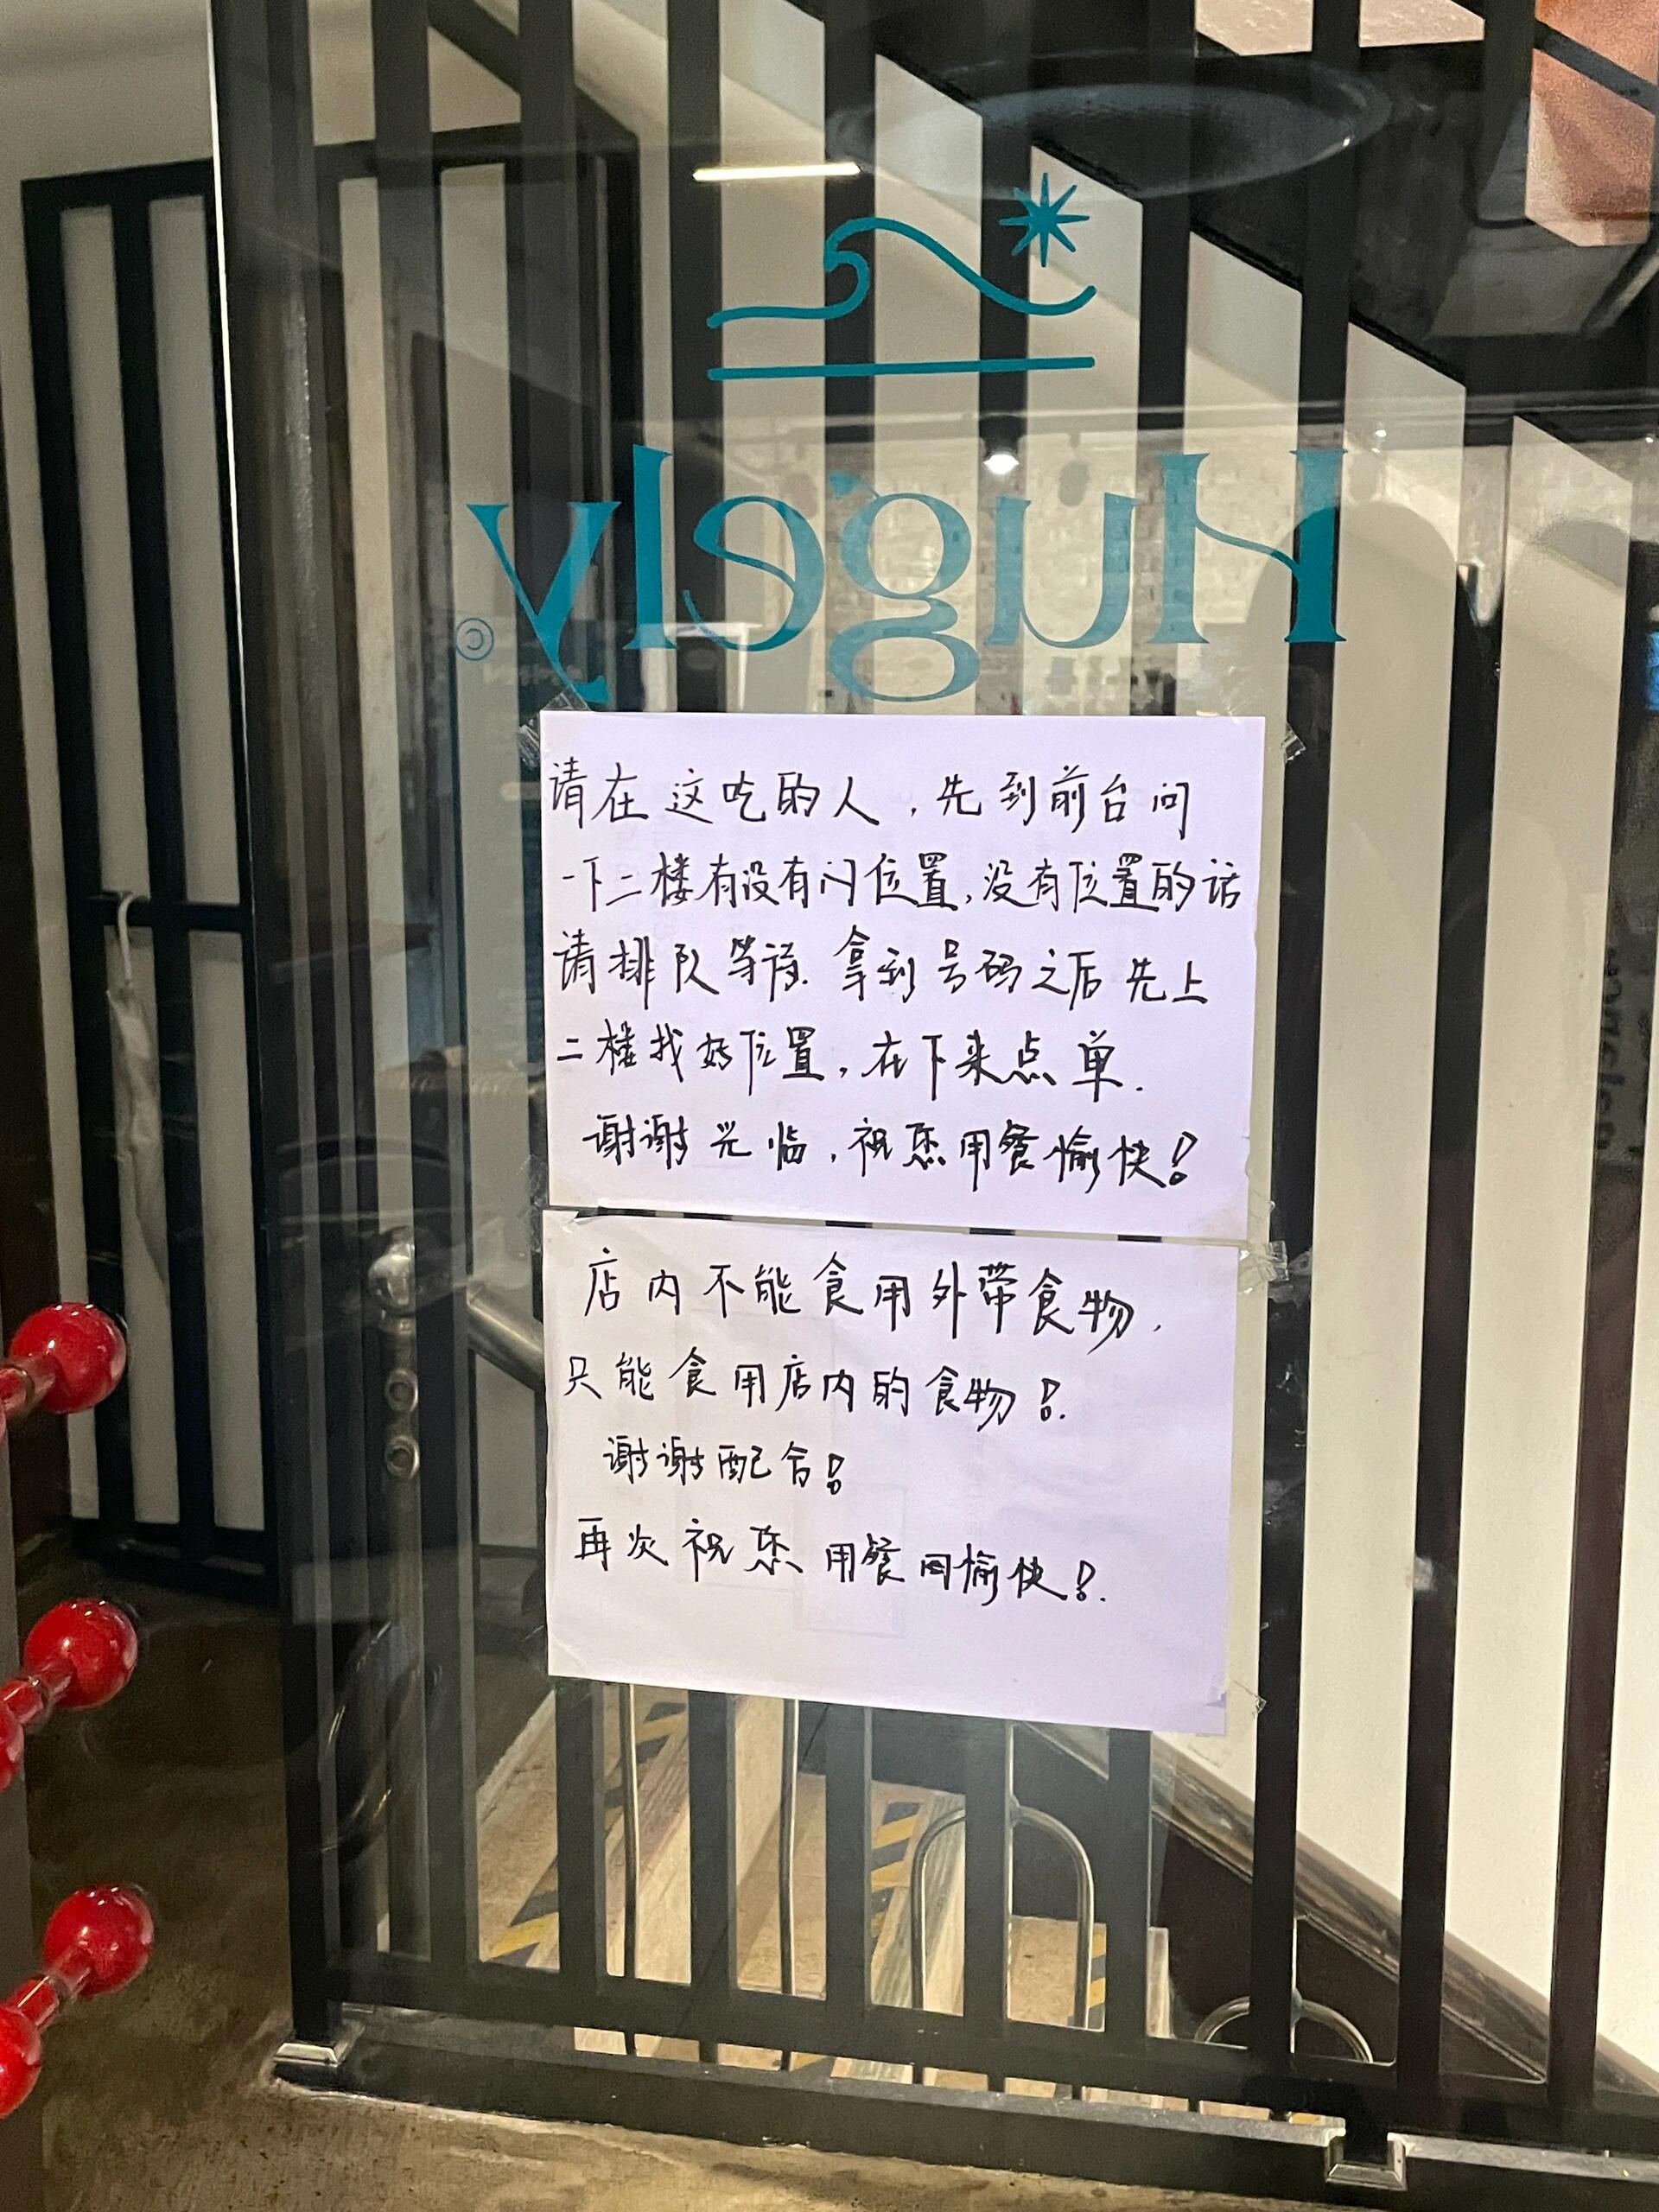 Hugely
©
请在这吃的人,先到前台问
一下二楼有没有问位置,没有位置的话
请排队等待.拿到号码之后先上
二楼找好位置,在下来点单.
谢谢光临,祝您用餐愉快!
店内不能食用外带食物,
只能食用店内的食物!.
谢谢配合!
再次祝您用餐间愉快!.